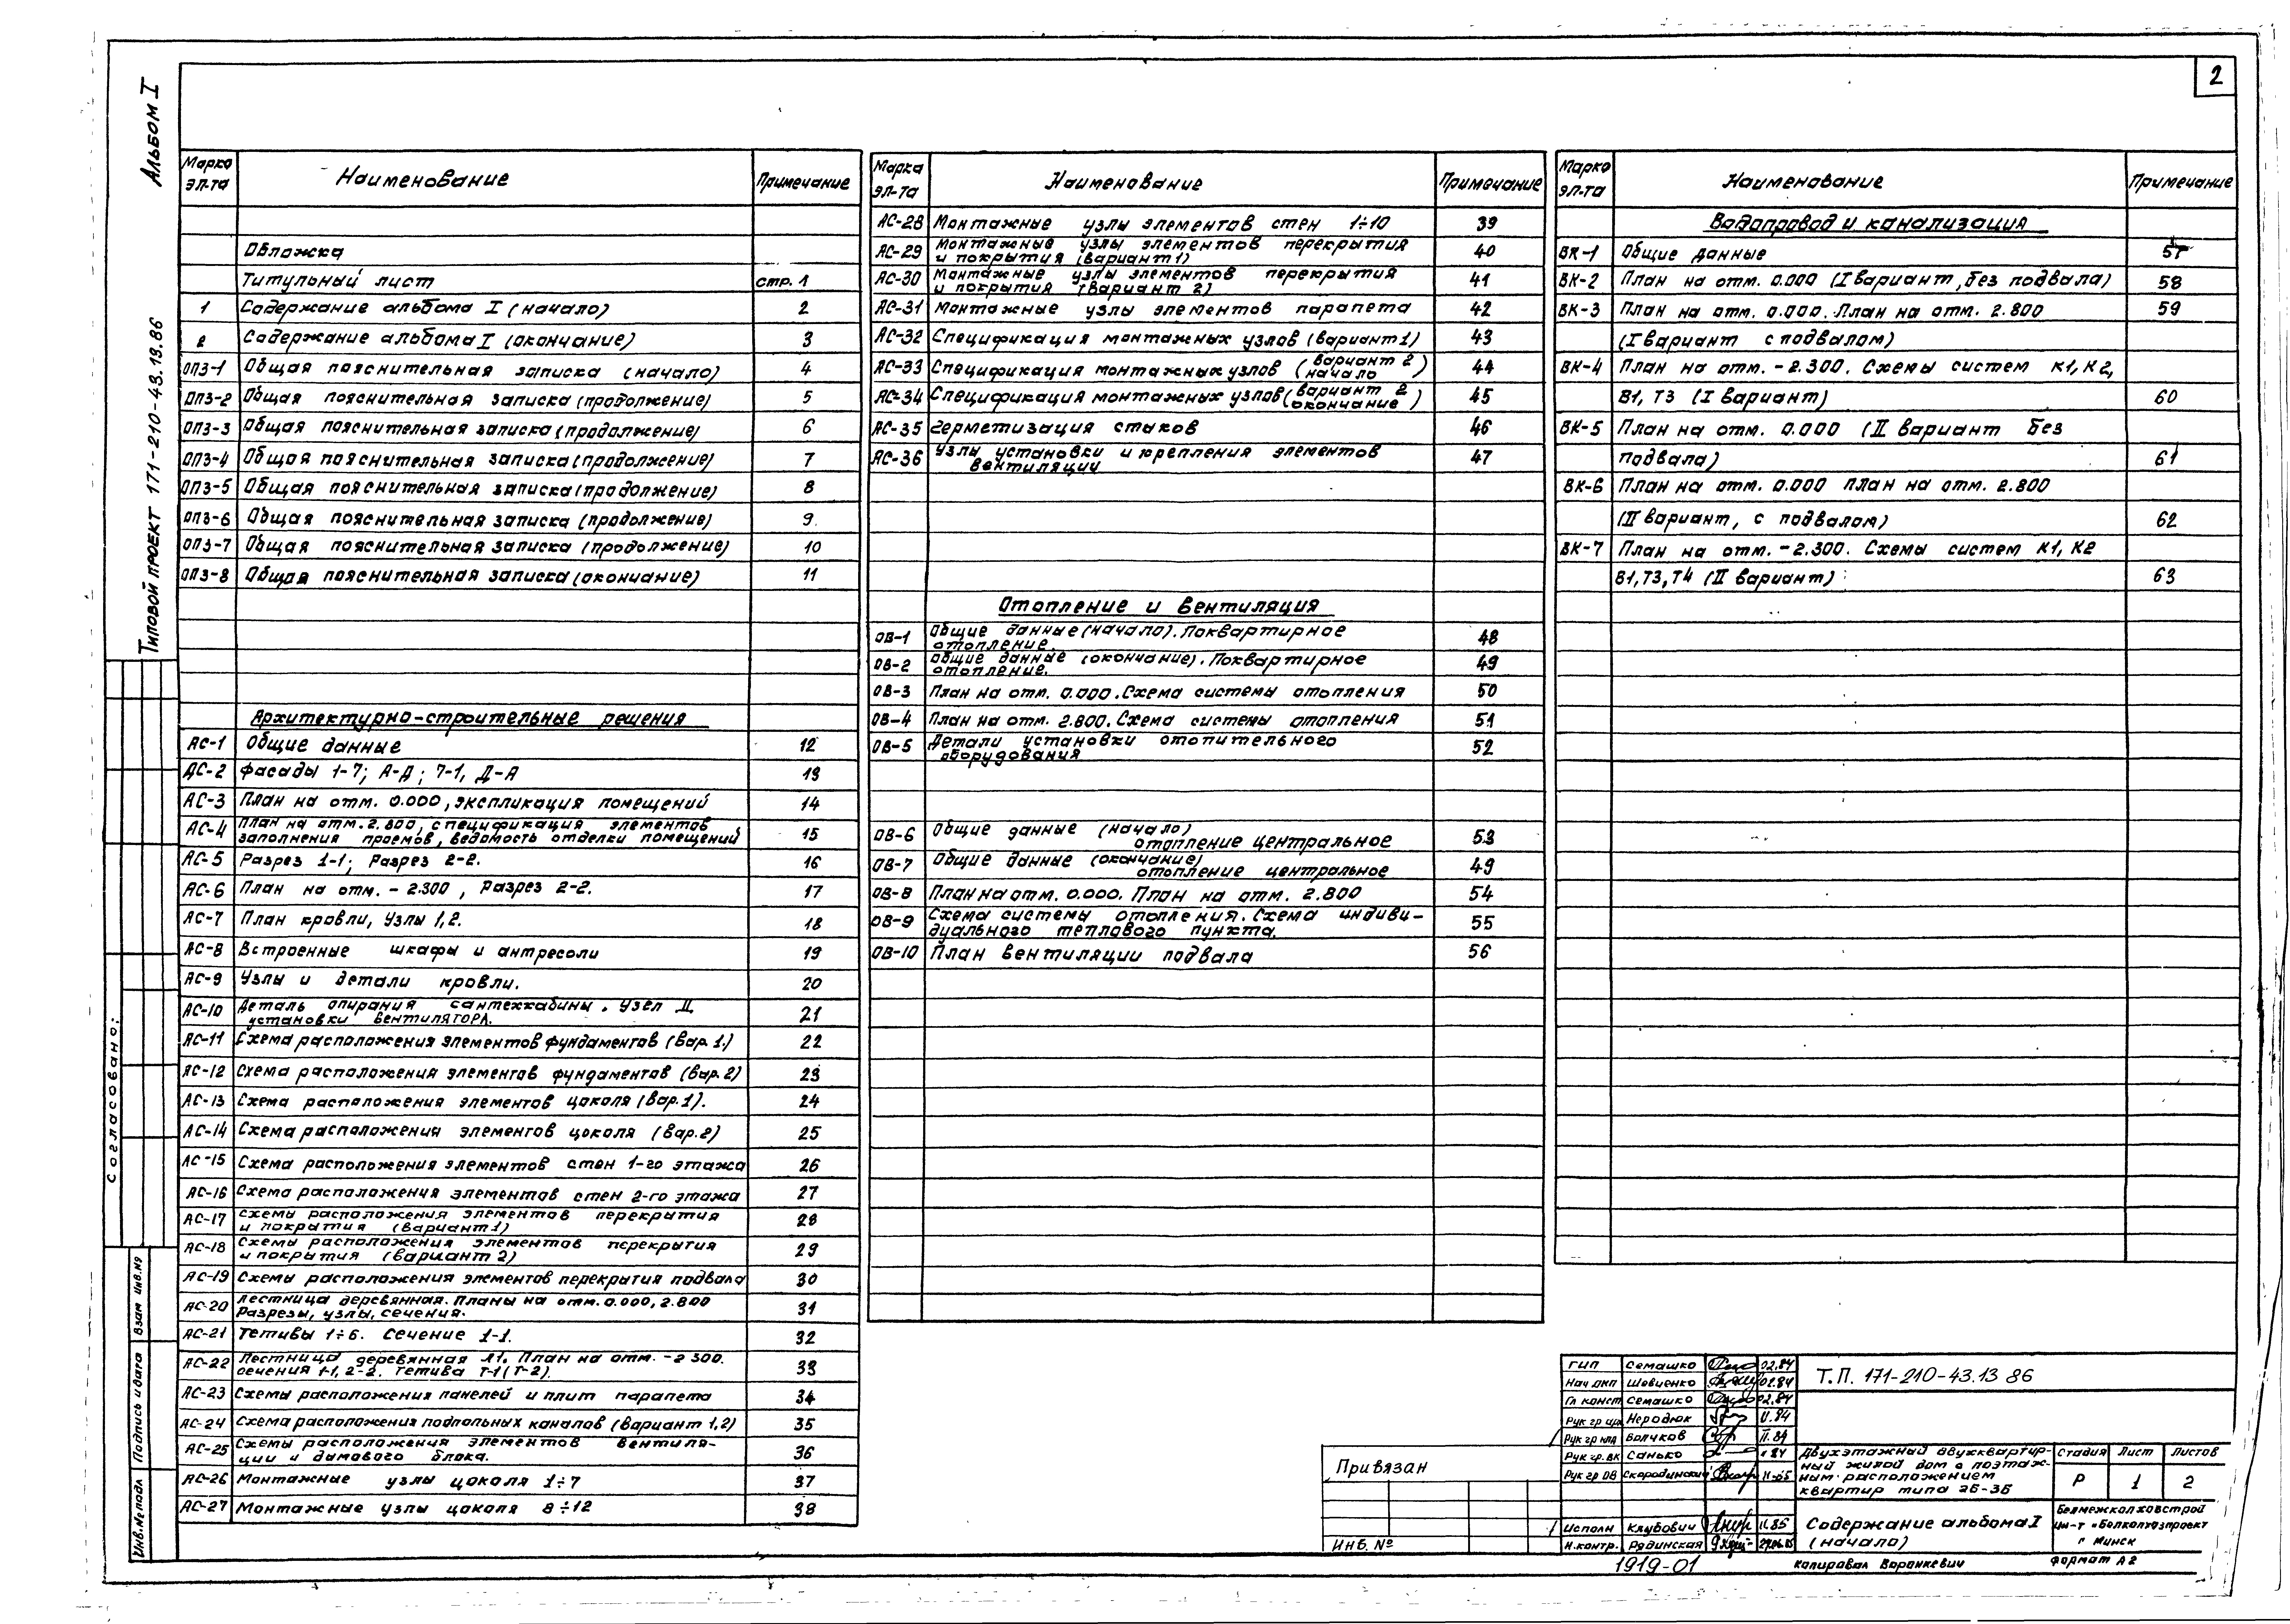 2
Альбом I
Типовой проект 171-210-43.13.86
Марка эл-та Наименование Примечание
Обложка
Титульный лист стр. 1
1 Содержание альбома I (начало) 2
2 Содержание альбома I (окончание) 3
ОПЗ-1 Общая пояснительная записка (начало) 4
ОПЗ-2 Общая пояснительная записка (продолжение) 5
ОПЗ-3 Общая пояснительная записка (продолжение) 6
ОПЗ-4 Общая пояснительная записка (продолжение) 7
ОПЗ-5 Общая пояснительная записка (продолжение) 8
ОПЗ-6 Общая пояснительная записка (продолжение) 9
ОПЗ-7 Общая пояснительная записка (продолжение) 10
ОПЗ-8 Общая пояснительная записка (окончание) 11
Архитектурно-строительные решения
АС-1 Общие данные 12
АС-2 Фасады 1-7; А-Д; 7-1, Д-А 13
АС-3 План на отм. 0.000, экспликация помещений 14
АС-4 План на отм. 2.800, спецификация элементов
заполнения проемов, ведомость отделки помещений 15
АС-5 Разрез 1-1; Разрез 2-2. 16
АС-6 План на отм. - 2.300, Разрез 2-2. 17
АС-7 План кровли, Узлы 1,2. 18
АС-8 Встроенные шкафы и антресоли 19
АС-9 Узлы и детали кровли. 20
АС-10 Деталь опирания сантехкабины. Узел II
установки вентилятора. 21
АС-11 Схема расположения элементов фундаментов (Вар. 1.) 22
АС-12 Схема расположения элементов фундаментов (Вар. 2) 23
АС-13 Схема расположения элементов цоколя (Вар. 1). 24
АС-14 Схема расположения элементов цоколя (Вар. 2) 25
АС-15 Схема расположения элементов стен 1-го этажа 26
АС-16 Схема расположения элементов стен 2-го этажа 27
АС-17 Схемы расположения элементов перекрытия
и покрытия (Вариант 1) 28
АС-18 Схемы расположения элементов перекрытия
и покрытия (Вариант 2) 29
АС-19 Схемы расположения элементов перекрытия подвала 30
АС-20 Лестница деревянная. Планы на отм. 0.000, 2.800
Разрезы, узлы, сечения. 31
АС-21 Тетивы 1÷6. Сечение 1-1. 32
АС-22 Лестница деревянная Л1. План на отм. -2 300.
Сечения 1-1, 2-2. Тетива Т-1 (Т-2). 33
АС-23 Схемы расположения панелей и плит парапета 34
АС-24 Схема расположения подпольных каналов (Вариант 1,2) 35
АС-25 Схемы расположения элементов вентиля-
ции и дымового блока. 36
АС-26 Монтажные узлы цоколя 1÷7 37
АС-27 Монтажные узлы цоколя 8÷12 38
Марка эл-та Наименование Примечание
АС-28 Монтажные узлы элементов стен 1÷10 39
АС-29 Монтажные узлы элементов перекрытия
и покрытия (вариант 1) 40
АС-30 Монтажные узлы элементов перекрытия
и покрытия (Вариант 2) 41
АС-31 Монтажные узлы элементов парапета 42
АС-32 Спецификация монтажных узлов (вариант 1) 43
АС-33 Спецификация монтажных узлов (вариант 2 начало) 44
АС-34 Спецификация монтажных узлов (вариант 2 окончание) 45
АС-35 Герметизация стыков 46
АС-36 Узлы установки и крепления элементов
вентиляции 47
Отопление и вентиляция
ОВ-1 Общие данные (начало). Поквартирное
отопление. 48
ОВ-2 Общие данные (окончание). Поквартирное
отопление. 49
ОВ-3 План на отм. 0.000. Схема системы отопления 50
ОВ-4 План на отм. 2.800. Схема системы отопления 51
ОВ-5 Детали установки отопительного
оборудования 52
ОВ-6 Общие данные (начало)
отопление центральное 53
ОВ-7 Общие данные (окончание)
отопление центральное 49
ОВ-8 План на отм. 0.000. План на отм. 2.800 54
ОВ-9 Схема системы отопления. Схема индиви-
дуального теплового пункта. 55
ОВ-10 План вентиляции подвала 56
Марка эл-та Наименование Примечание
Водопровод и канализация
ВК-1 Общие данные 57
ВК-2 План на отм. 0.000 (I вариант, без подвала) 58
ВК-3 План на отм. 0.000. План на отм. 2.800 59
(I Вариант с подвалом)
ВК-4 План на отм. - 2.300. Схемы систем К1, К2,
В1, Т3 (I вариант) 60
ВК-5 План на отм. 0.000 (II вариант без
подвала) 61
ВК-6 План на отм. 0.000 План на отм. 2.800
(II вариант, с подвалом) 62
ВК-7 План на отм. - 2.300. Схемы систем К1, К2
В1, Т3, Т4 (II вариант) 63
Согласовано:
Взам инв.№
Подпись и дата
Инв.№ подл
Привязан
Инв. №
ГИП Семашко 02.84
Нач ОКП Шевченко 02.84
Гл конст Семашко 02.84
Рук гр арх Неродюк
Рук гр Волчков
Рук гр. ВК Санько
Рук гр ОВ Скородинский
Исполн Клубович
Н.контр. Рядинская
Т.П. 171-210-43.13 86
Двухэтажный двухквартир-
ный жилой дом с поэтаж-
ным расположением
квартир типа 2Б-3Б
Стадия Лист Листов
Р 1 2
Содержание альбома I
(начало)
Белмежколхозстрой
ин-т «Белколхозпроект
г Минск
1919-01
копировал Воронкевич
Формат А2